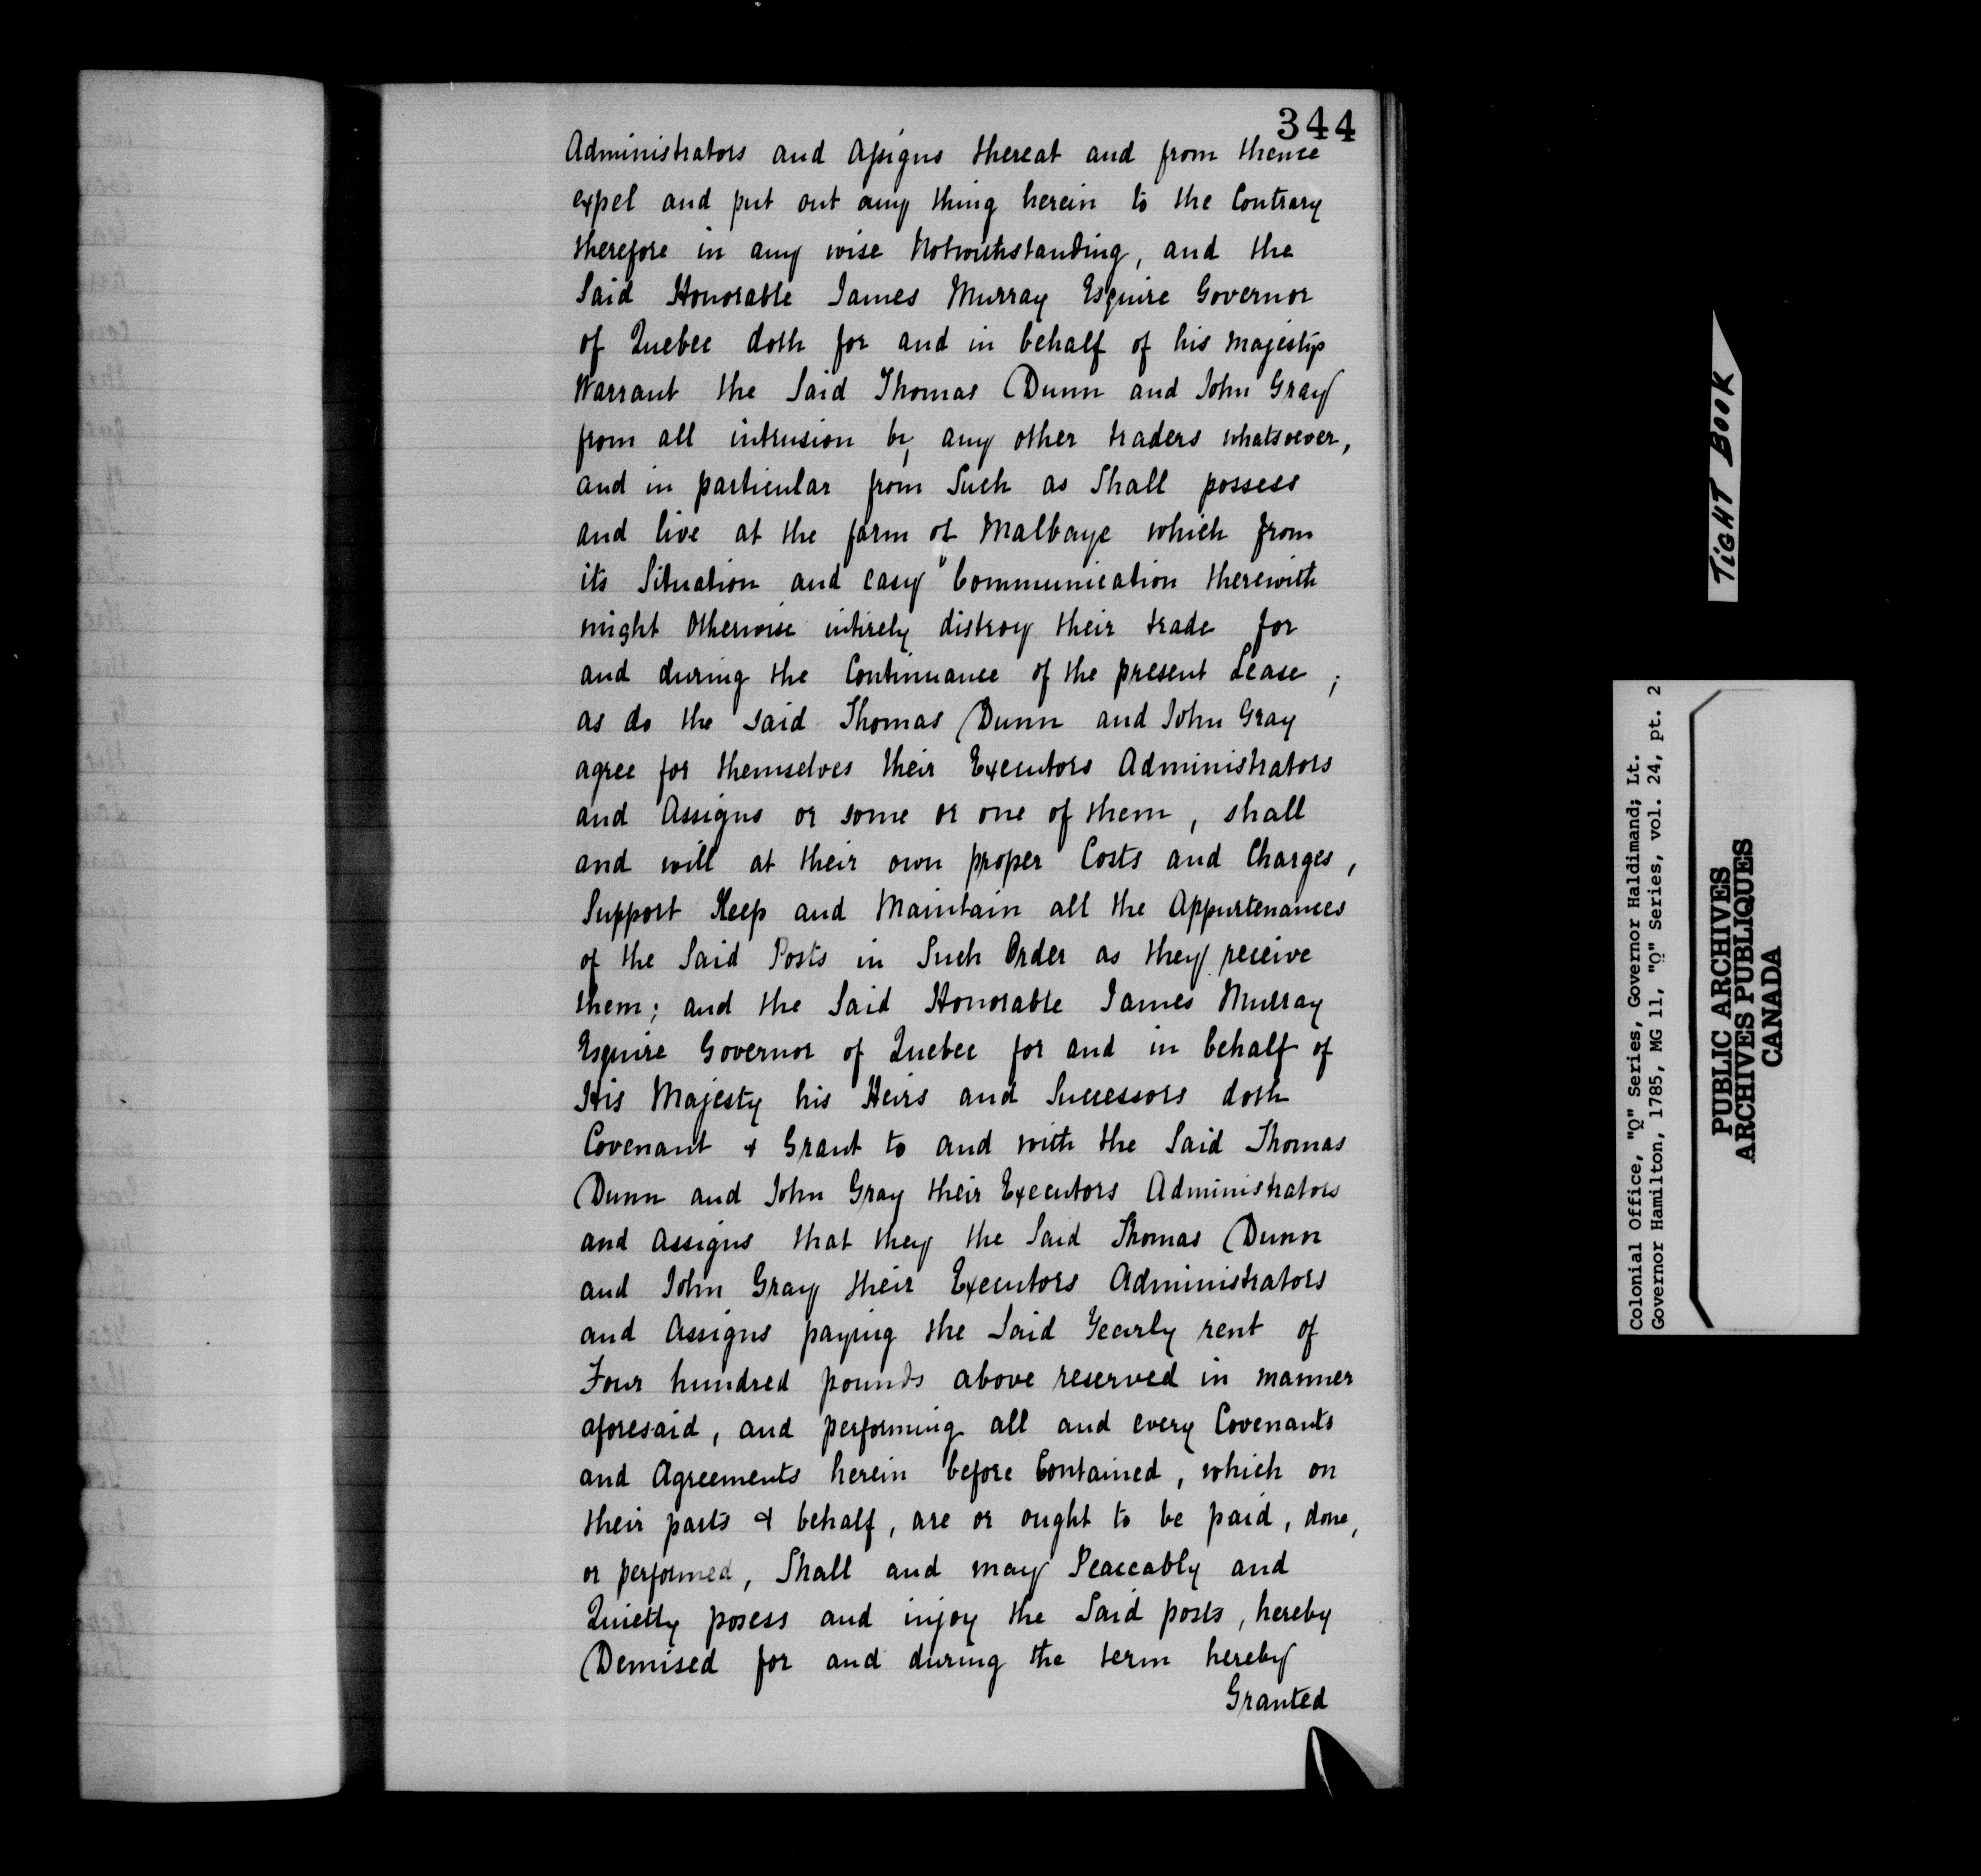 344
Administrators and Assigns thereat and from thence
expel and put out any thing herein to the Contrary
therefore in any wise Notwithstanding, and the
Said Honorable James Murray Esquire Governor
of Quebec doth for and in behalf of his Majestys
Warrant the Said Thomas Dunn and John Gray
from all intrusion by any other traders whatsoever,
and in particular from Such as Shall possess
and live at the farm of Malbaye which from
its Situation and easy Communication therewith
might Otherwise intirely distroy their trade for
and during the Continuance of the present Lease;
as do the said Thomas Dunn and John Gray
agree for themselves their Executors Administrators
and Assigns or some or one of them, shall
and will at their own proper Costs and Charges,
Support Keep and Maintain all the Appurtenances
of the Said Posts in Such Order as they receive
them; and the Said Honorable James Murray
Esquire Governor of Quebec for and in behalf of
His Majesty his Heirs and Successors doth
Covenant & Grant to and with the Said Thomas
Dunn and John Gray their Executors Administrators
and Assigns that they the Said Thomas Dunn
and John Gray their Executors Administrators
and Assigns paying the Said Yearly rent of
Four hundred pounds above reserved in manner
aforesaid, and performing all and every Covenants
and Agreements herein before Contained, which on
their parts & behalf, are or ought to be paid, done,
or performed, Shall and may Peaceably and
Quietly posess and injoy the Said posts, hereby
Demised for and during the term hereby
Granted
TIGHT BOOK
Colonial Office, "Q" Series, Governor Haldimand; Lt.
Governor Hamilton, 1785, MG 11, "Q" Series, vol. 24, pt. 2
PUBLIC ARCHIVES
ARCHIVES PUBLIQUES
CANADA